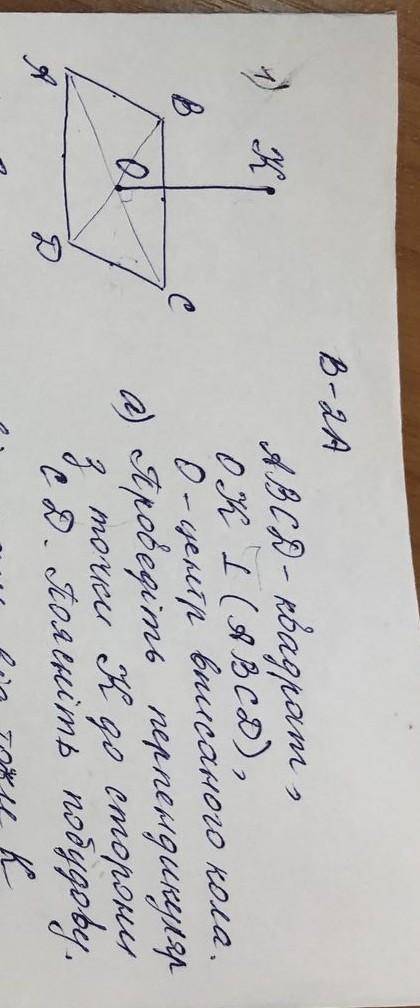 В-2А
1)
K
B
C
O
A
D
ABCD - квадрат,
OK ⊥ (ABCD),
O - центр вписаного кола.
а) Проведіть перпендикуляр
з точки K до сторони
CD. Поясніть побудову.
від точки K